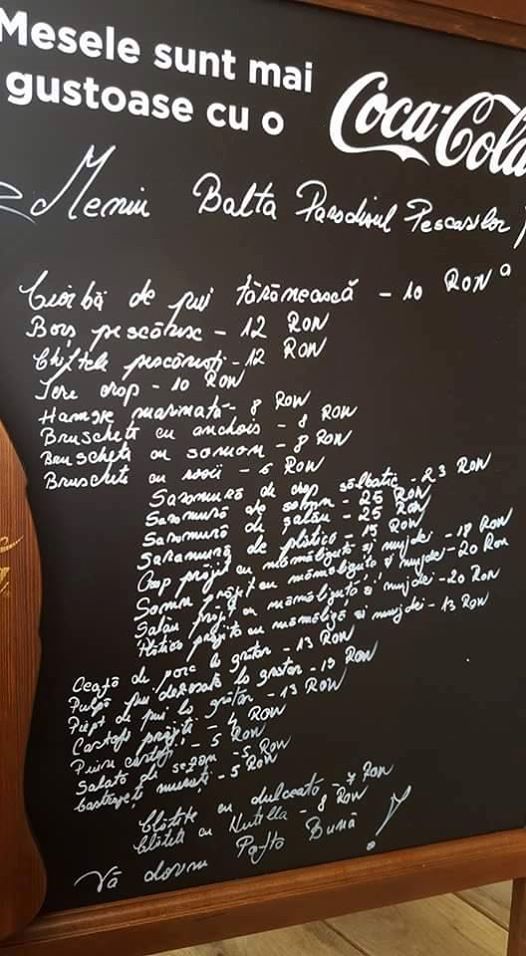 Mesele sunt mai
gustoase cu o
Coca-Cola
Meniu Balta Paradisul Pescarilor
Ciorbă de pui țărănească - 10 RON
Borș pescăresc - 12 RON
Chiftele pescărești - 12 RON
Icre crap - 10 RON
Hamsie marinată - 8 RON
Bruschete cu anchois - 8 RON
Bruschete cu somon - 8 RON
Bruschete cu roșii - 6 RON
Saramură de crap sălbatic - 23 RON
Saramură de somn - 25 RON
Saramură de șalău - 25 RON
Saramură de plătică - 15 RON
Crap prăjit cu mămăliguță și mujdei - 18 RON
Somn prăjit cu mămăliguță și mujdei - 20 RON
Șalău prăjit cu mămăliguță și mujdei - 20 RON
Plătică prăjită cu mămăligă și mujdei - 13 RON
Ceafă de porc la grătar - 13 RON
Pulpă pui dezosată la grătar - 13 RON
Piept de pui la grătar - 13 RON
Cartofi prăjiți - 4 RON
Piure cartofi - 5 RON
Salată de sezon - 5 RON
Castraveți murați - 5 RON
Clătite cu dulceață - 7 RON
Clătite cu Nutella - 8 RON
Vă dorim Poftă Bună !